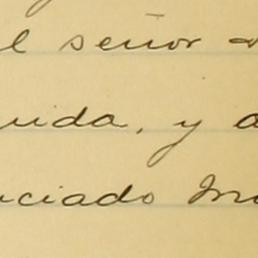 l señor d
uida, y a
nciado Ma